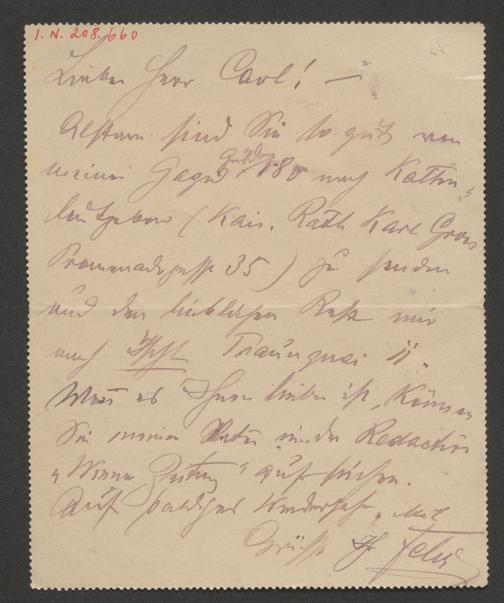 I. N. 208.660
Lieber Herr Carl! —
Gestern sind Sie so gut von
meiner Gage 180 nach Kalten-
leutgeben (Kais. Rath Karl Gross
Promenadegasse 35) zu senden
und den lieblichen Rest mir
nach Ischl Traunquai 11.
Wenn es Ihnen lieber ist, können
Sie meinen Vater in der Redaction
„Wiener Zeitung" aufsuchen.
Auf baldiges Wiedersehn. Mit
Grüße